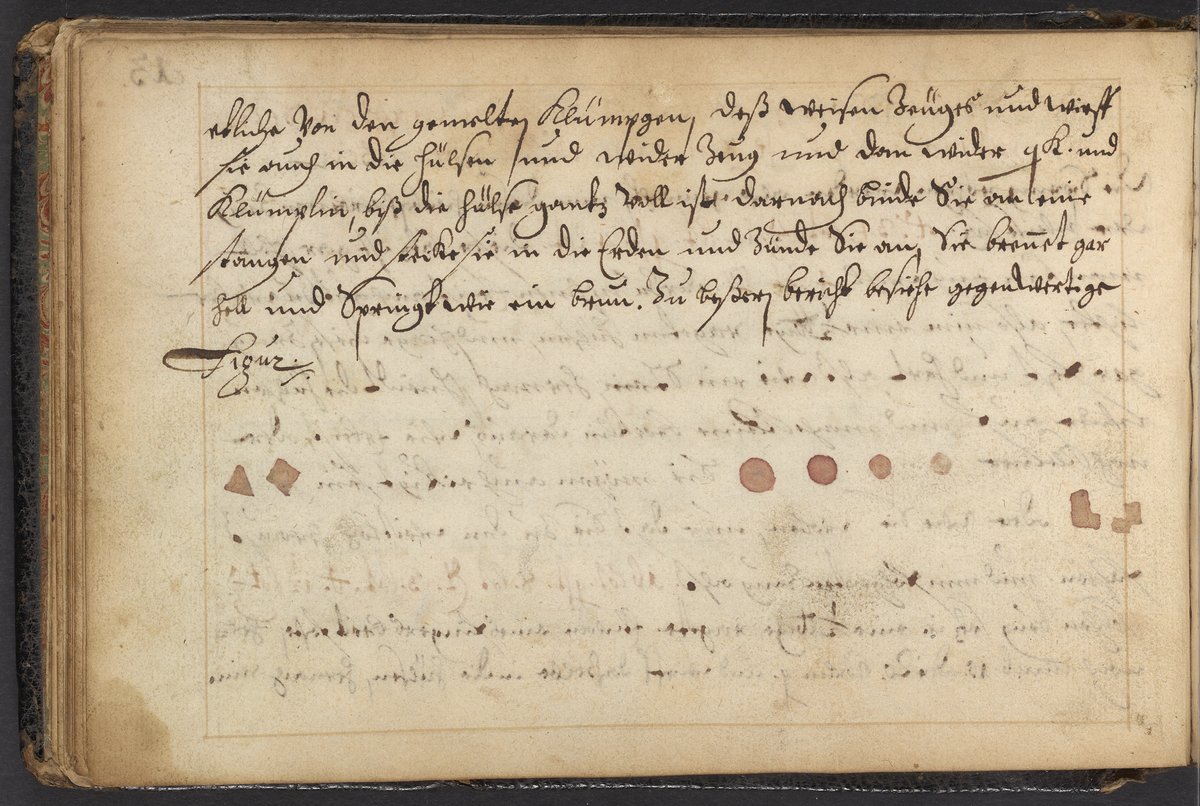 etliche Von den gemelten Klümpgen, deß weisen Zeuges und wirff
sie auch in die hülsen und wider Zeug und dan wider qK. und
Klümplin, biß die hülse gantz Voll ist darnach binde Sie an eine
stangen und stecke sie in die Erden und Zünde Sie an, Sie brennet gar
hell und Springt wie ein brun. Zu beßern bericht besiehe gegenwertige
Figur.